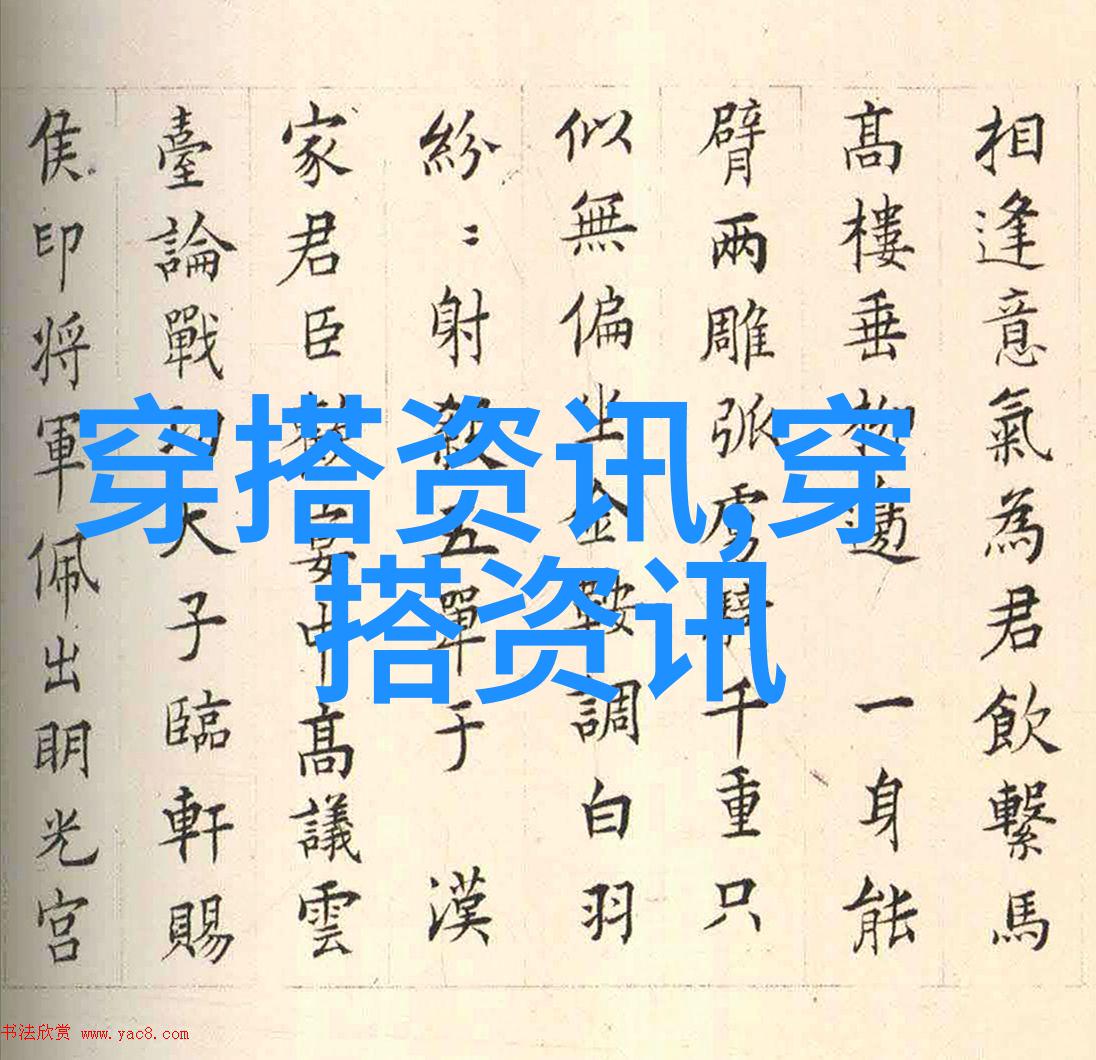 相逢意氣為君飲繫馬
髙樓垂柳邊 一身能
臂兩雕弧虜騎千重只
似無偏坐金鞍調白羽
紛〻射殺五單于 漢
家君臣歡宴中髙議雲
臺論戰功天子臨軒賜
侯印将軍佩出明光宮
穿搭资讯,穿
搭资讯
书法欣赏 www.yac8.com